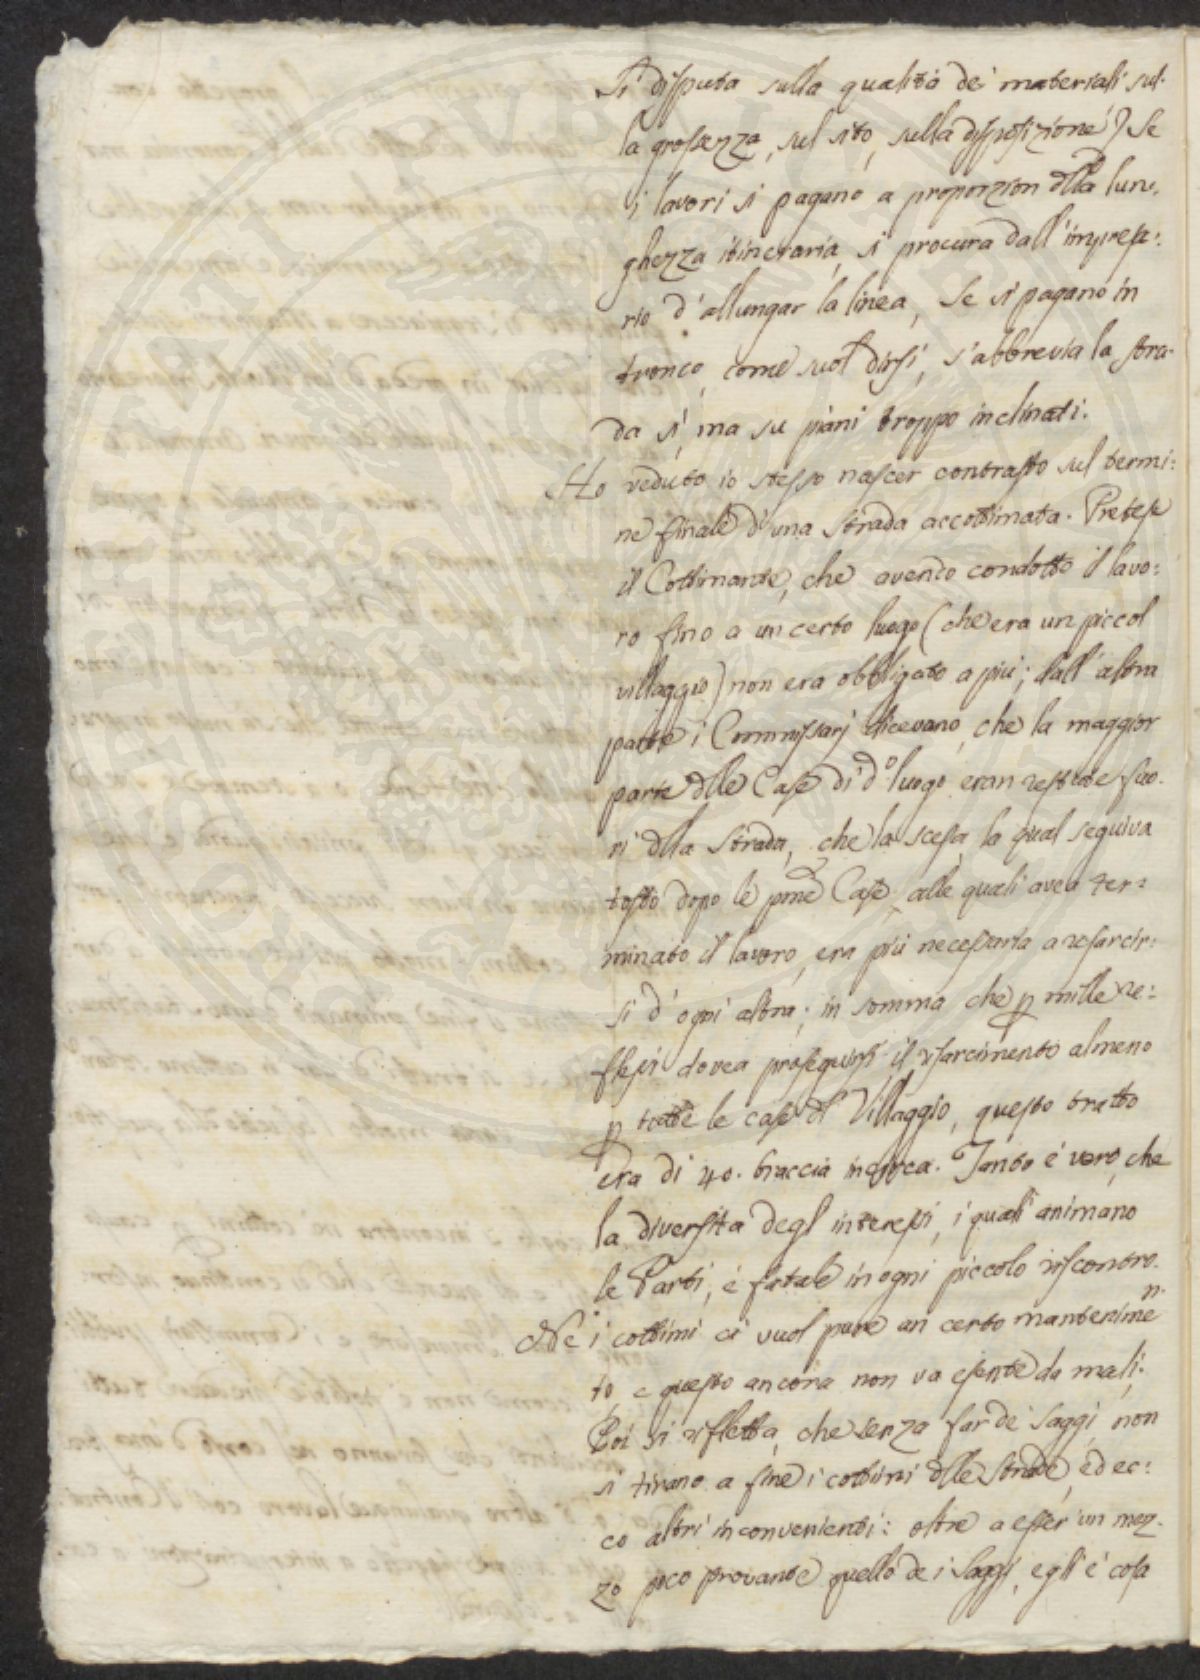 Si disputa sulla qualità dei materiali sul-
la grossezza, sul sito, sulla disposizione? Se
i lavori si pagano a proporzion dlla lun-
ghezza itineraria, si procura dall'impresa:
rio d'allungar la linea, Se si pagano in
tronco, come suol dirsi, s'abbrevia la stra-
da sì, ma su piani troppo inclinati.
Ho veduto io stesso nascer contrasto sul termi:
ne finale d'una strada accottimata. Pretese
il Cottimante, che avendo condotto il lavo:
ro fino a un certo luogo (che era un piccol
villaggio) non era obbligato a più; dall'altra
parte i Commissarj dicevano, che la maggior
parte dlle Case di do luogo eran restate fuo-
ri dlla strada, che la scesa, la qual seguiva
tosto dopo le pme Case, alle quali avea ter:
minato il lavoro, era più necessaria a resarcir:
si d'ogni altra; in somma che p mille re:
flessi dovea proseguirsi il risarcimento almeno
p tutte le case dl Villaggio, questo tratto
era di 40. braccia incirca. Tanto è vero, che
la diversita degl'interessi, i quali animano
le Parti, è fatale in ogni piccolo riscontro.
Ne' i cottimi ci vuol pure un certo mantenimen
to, e questo ancora non va esente da mali;
Poi si rifletta, che senza far de' saggi, non
si tirano a fine i cottimi dlle strade, ed ec:
co altri inconvenienti: oltre a esser un mez-
zo poco provante quello de i Saggi, egli è cosa